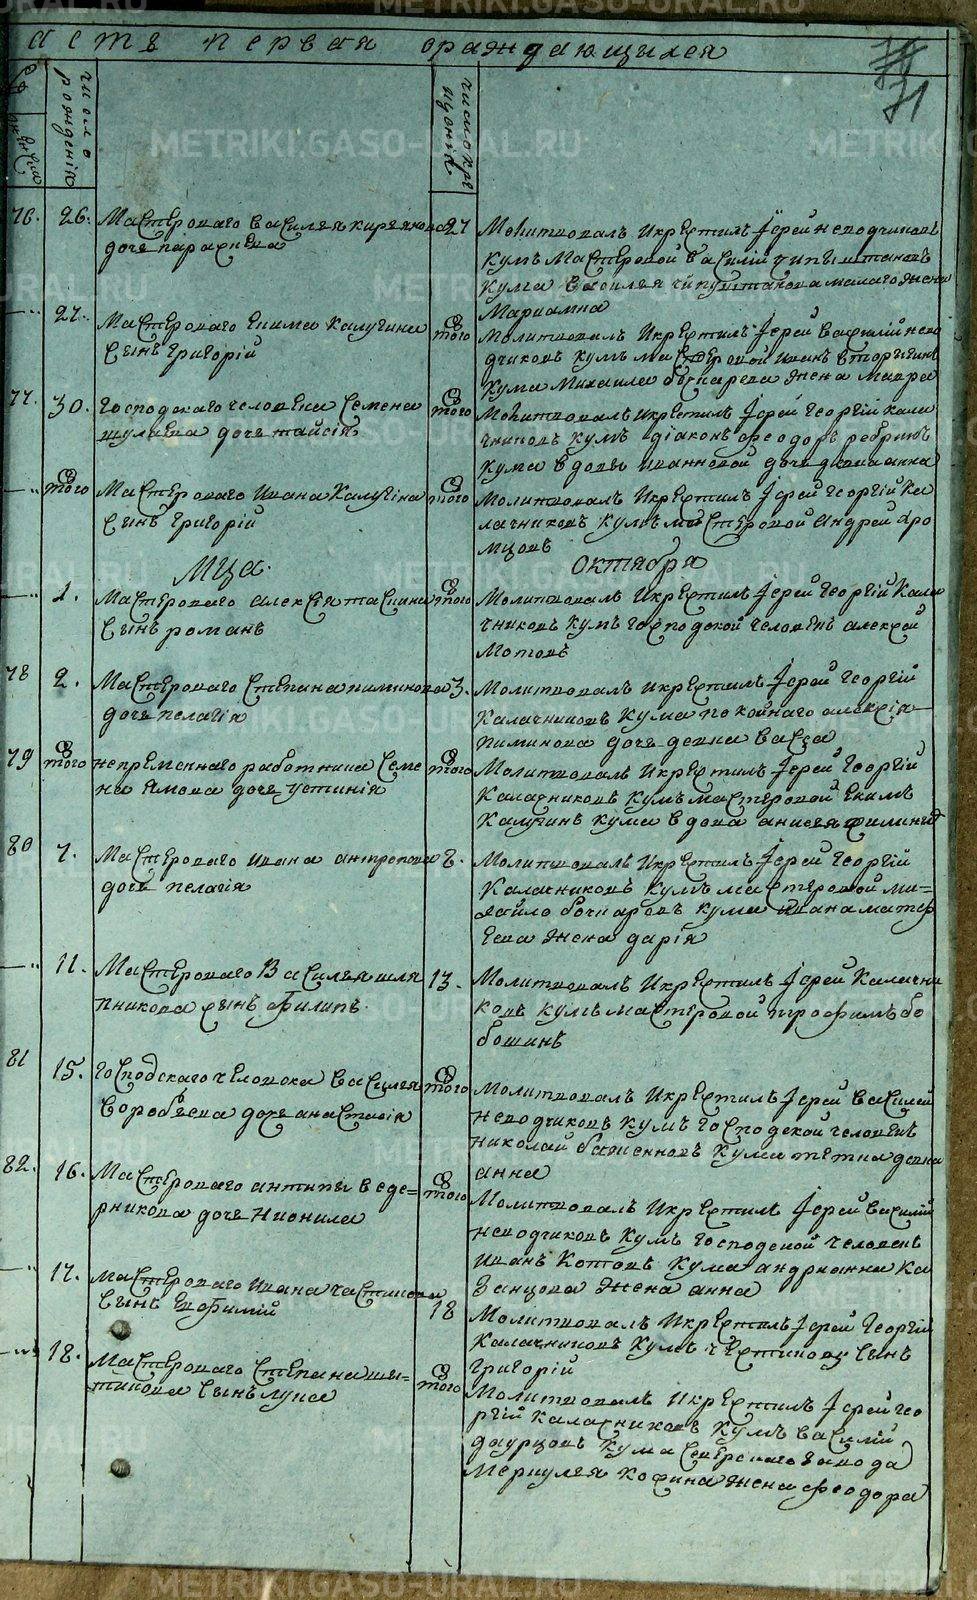 METRIKI.GASO-URAL.RU
асть первая ораждающихся
71
число рождения
число крещенія
76. 26. Мастероваго василея кирелнова 27
дочь параскева
Молитвовалъ Икрестилъ Іерей неводчиковъ
кумъ Мастеровой василій
кума василея малаго жена
Мариамна
27. Мастероваго екима калугина того
сынъ григорій
молитвовалъ Икрестилъ Іерей василій нево
дчиковъ кумъ мастеровой иванъ вторыгинъ
кума михаила бочкарева жена мавра
77. 30. господскаго человека семена того
шулаева дочь таисія
Молитвовалъ Икрестилъ Іерей георгій кала
чниковъ кумъ діаконъ феодоръ ребринъ
кума вдовы ивановой дочь девка анна
того Мастероваго ивана калугина того
сынъ григорій
Молитвовалъ Икрестилъ Іерей георгій ка
лачниковъ кумъ мастеровой андрей хро
мцовъ
Мца. октября
1. Мастероваго алексея таскина того
сынъ романъ
Молитвовалъ Икрестилъ Іерей георгій кала
чниковъ кумъ господской человекъ алексей
мотовъ
78 2. Мастероваго степана пиминова 3.
дочь пелагія
Молитвовалъ Икрестилъ Іерей георгій
калачниковъ кума покойнаго алексія
пиминова дочь девка васса
79 того непременнаго работника семе того
на ямова дочь устинія
Молитвовалъ Икрестилъ Іерей георгій
калачниковъ кумъ мастеровой екимъ
калугинъ кума вдова анисья
80 7. Мастероваго ивана антропова 8.
дочь пелагія
Молитвовалъ Икрестилъ Іерей георгій
калачниковъ кумъ мастеровой ми-
хайло бочкаревъ кума ивана матф
еева жена дарія
11. Мастероваго василья шля 13.
пникова сынъ филипъ.
Молитвовалъ Икрестилъ Іерей калачни
ковъ кумъ мастеровой трофимъ бо
бошинъ
81 15. господскаго человека василея того
воробьева дочь анастасія
Молитвовалъ Икрестилъ Іерей василей
неводчиковъ кумъ господской человекъ
николай баженновъ кума тетка девка
анна
82. 16. Мастероваго антипы веде- того
рникова дочь Нионила
Молитвовалъ Икрестилъ Іерей василій
неводчиковъ кумъ господской человекъ
иванъ котовъ кума андриянна ка
занцова жена анна
17. Мастероваго ивана частикова 18
сынъ евфимій
Молитвовалъ Икрестилъ Іерей георгій
калачниковъ кумъ сынъ
григорій
18. Мастероваго степана шы- того
тикова сынъ лука
Молитвовалъ Икрестилъ Іерей гео
ргій калачниковъ кумъ василій
даурцовъ кума северскаго завода
меркулея кокина жена феодора